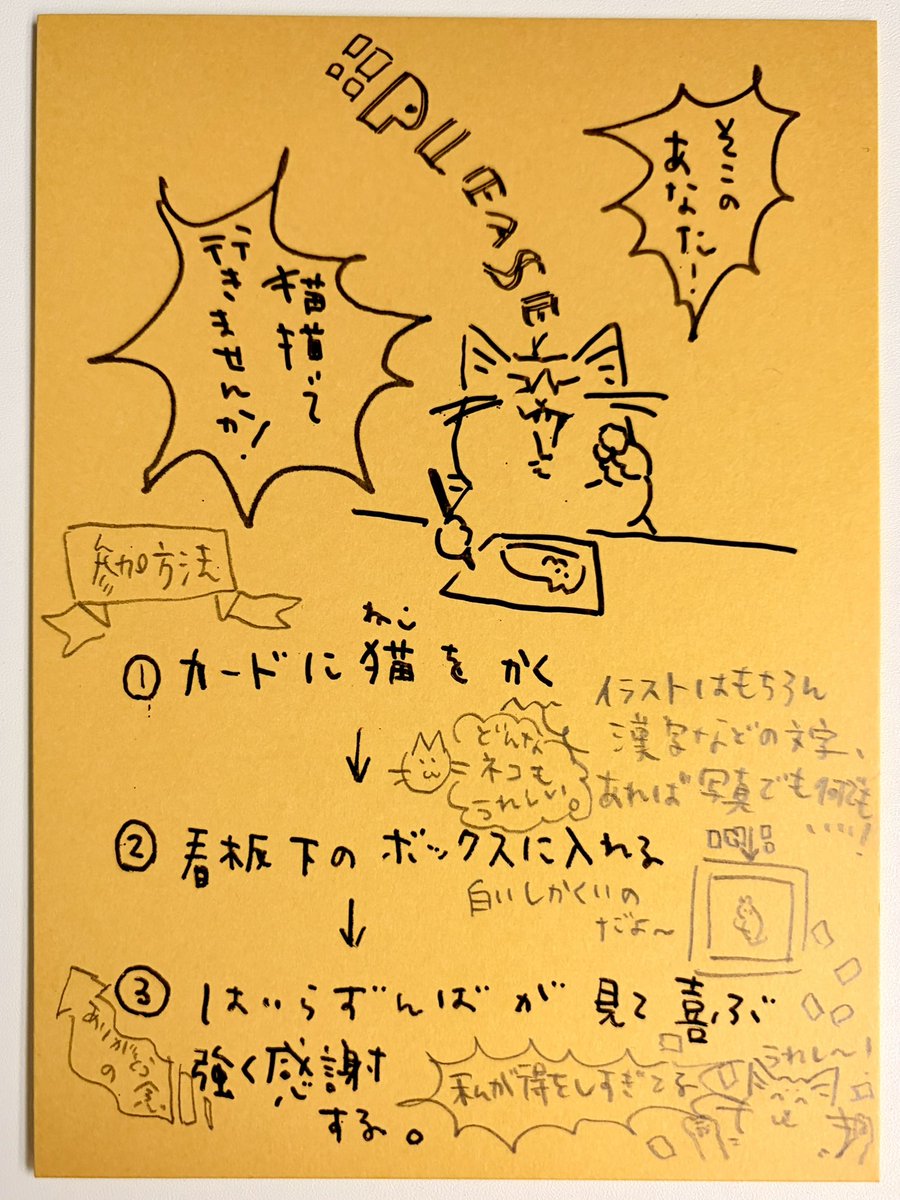 PLEASE
そこの
あなた!
猫描いて
行きませんか!
参加方法
①カードに猫をかく
ねこ
どんな
ネコも
うれしい。
イラストはもちろん
漢字などの文字、
あれば写真でも何でも
いい!
②看板下のボックスに入れる
白いしかくいの
だよ~
③はいらずんばが見て喜ぶ
強く感謝
する。
ありがとう
の
私が得をしすぎてる
うれし~!